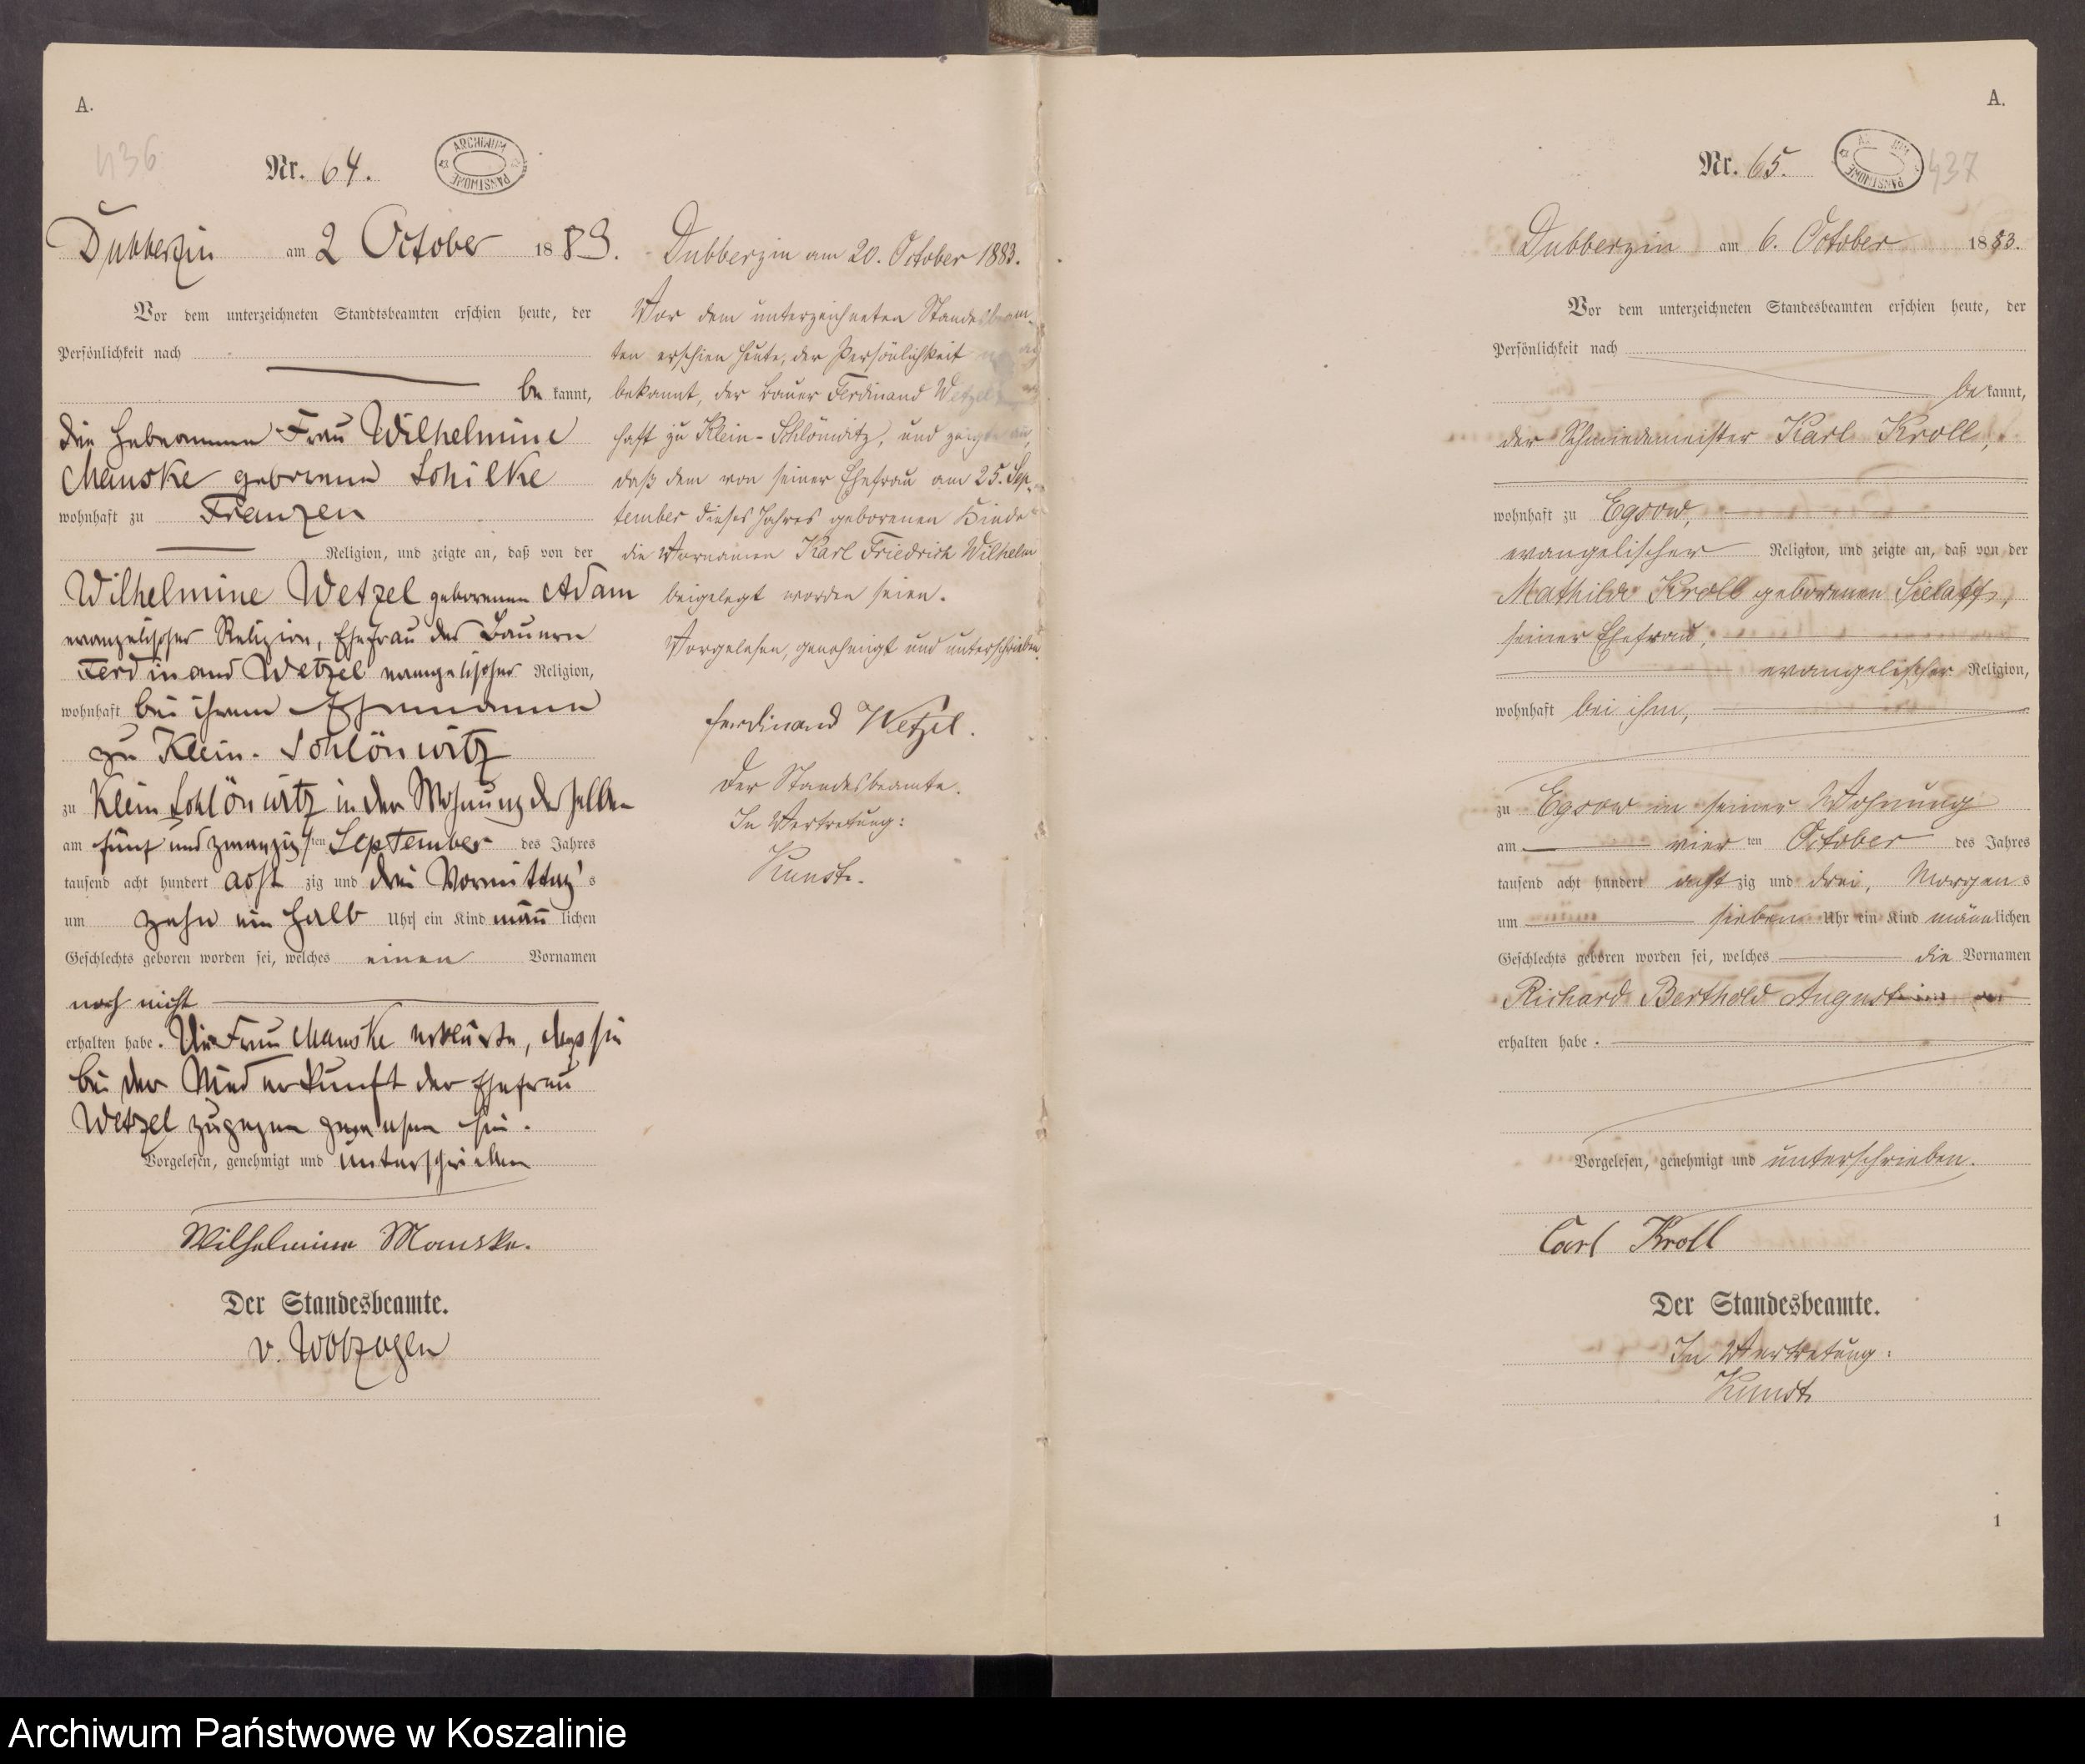 A.
436
Nr. 64.
ARCHIWUM PAŃSTWOWE
Dubberzin am 2 October 1883.
Vor dem unterzeichneten Standtsbeamten erschien heute, der
Persönlichkeit nach
be kannt,
die Hebeamme Frau Wilhelmine
Manske geborene Schilke
wohnhaft zu Franzen
Religion, und zeigte an, daß von der
Wilhelmine Wetzel geborenen Adam
evangelischer Religion, Ehefrau des Bauern
Ferdinand Wetzel evangelischer Religion,
wohnhaft bei ihrem Ehemanne
zu Klein-Schlönwitz
zu Klein Schlönwitz in der Wohnung desselben
am fünf und zwanzigsten September des Jahres
tausend acht hundert acht zig und drei Vormittag's
um zehn ein halb Uhr ein Kind männlichen
Geschlechts geboren worden sei, welches einen Vornamen
noch nicht
erhalten habe. Die Frau Manske erklärte, dass sie
bei der Niederkunft der Ehefrau
Wetzel zugegen gewesen sei.
Vorgelesen, genehmigt und unterschrieben
Wilhelmine Manske.
Der Standesbeamte.
v. Wolzogen
Dubberzin am 20. October 1883.
Vor dem unterzeichneten Standesbeam-
ten erschien heute, der Persönlichkeit nach
bekannt, der Bauer Ferdinand Wetzel wohn
haft zu Klein-Schlönwitz, und zeigte an,
daß dem von seiner Ehefrau am 25. Sep-
tember dieses Jahres geborenen Kinde
die Vornamen Karl Friedrich Wilhelm
beigelegt worden seien.
Vorgelesen, genehmigt und unterschrieben.
Ferdinand Wetzel.
Der Standesbeamte.
In Vertretung:
Kunst.
A.
Nr. 65.
437
Dubberzin am 6. October 1883.
Vor dem unterzeichneten Standesbeamten erschien heute, der
Persönlichkeit nach
be kannt,
der Schmiedemeister Karl Kroll,
wohnhaft zu Egsow,
evangelischer Religion, und zeigte an, daß von der
Mathilde Kroll geborenen Sielaff,
seiner Ehefrau,
evangelischer Religion,
wohnhaft bei ihm,
zu Egsow in seiner Wohnung
am vier ten October des Jahres
tausend acht hundert acht zig und drei, Morgens
um sieben Uhr ein Kind männlichen
Geschlechts geboren worden sei, welches die Vornamen
Richard Berthold August
erhalten habe.
Vorgelesen, genehmigt und unterschrieben.
Carl Kroll
Der Standesbeamte.
In Vertretung:
Kunst
1
Archiwum Państwowe w Koszalinie